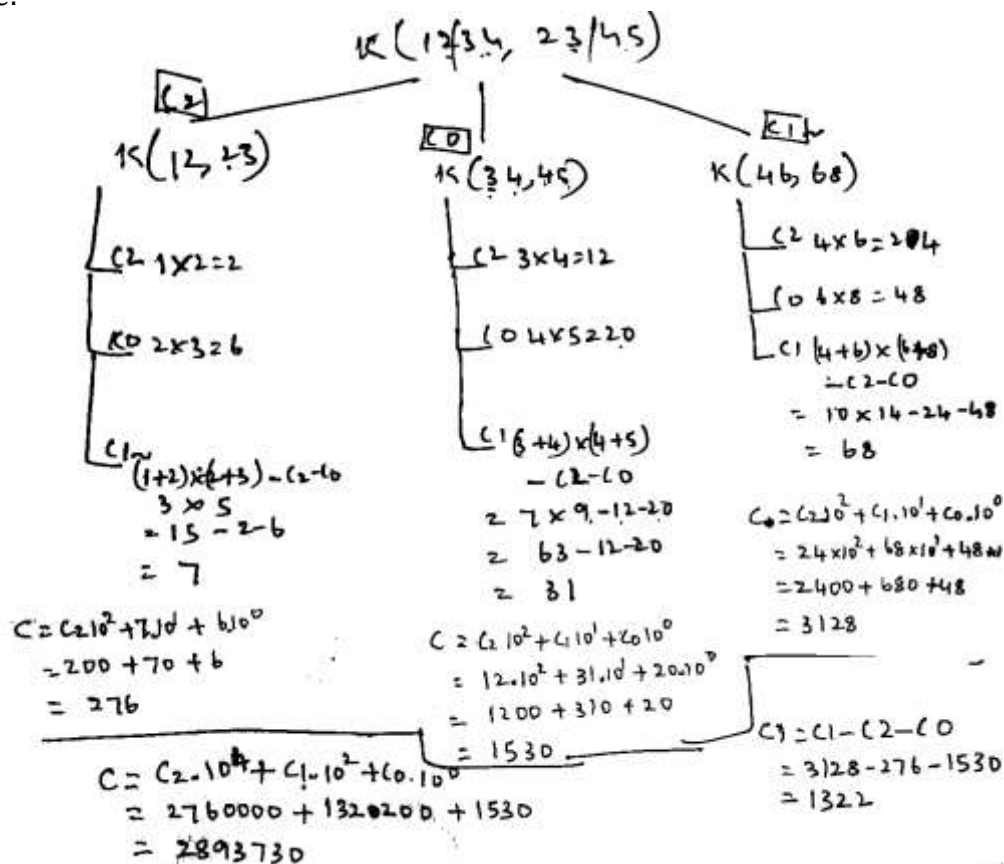 e.
K(12/34, 23/45)
C2
K(12, 23)
C2 1×2=2
K0 2×3=6
C1~
(1+2)×(2+3)-C2-C0
3×5
=15-2-6
= 7
C=C2 10² + 7.10¹ + 6.10⁰
=200+70+6
= 276
C0
K(34,45)
C2 3×4=12
C0 4×5=20
C1 (3+4)×(4+5)
-C2-C0
= 7×9-12-20
= 63-12-20
= 31
C = C2 10² + C1 10¹ + C0 10⁰
= 12.10² + 31.10¹ + 20.10⁰
= 1200+310+20
= 1530
C1~
K(46, 68)
C2 4×6=24
C0 6×8=48
C1 (4+6)×(6+8)
-C2-C0
= 10×14-24-48
= 68
C=C2.10²+C1.10¹+C0.10⁰
= 24×10²+68×10¹+48
=2400+680+48
= 3128
C1=C1-C2-C0
=3128-276-1530
=1322
C= C2.10⁴+C1.10²+C0.10⁰
= 2760000+1320200+1530
= 2893730